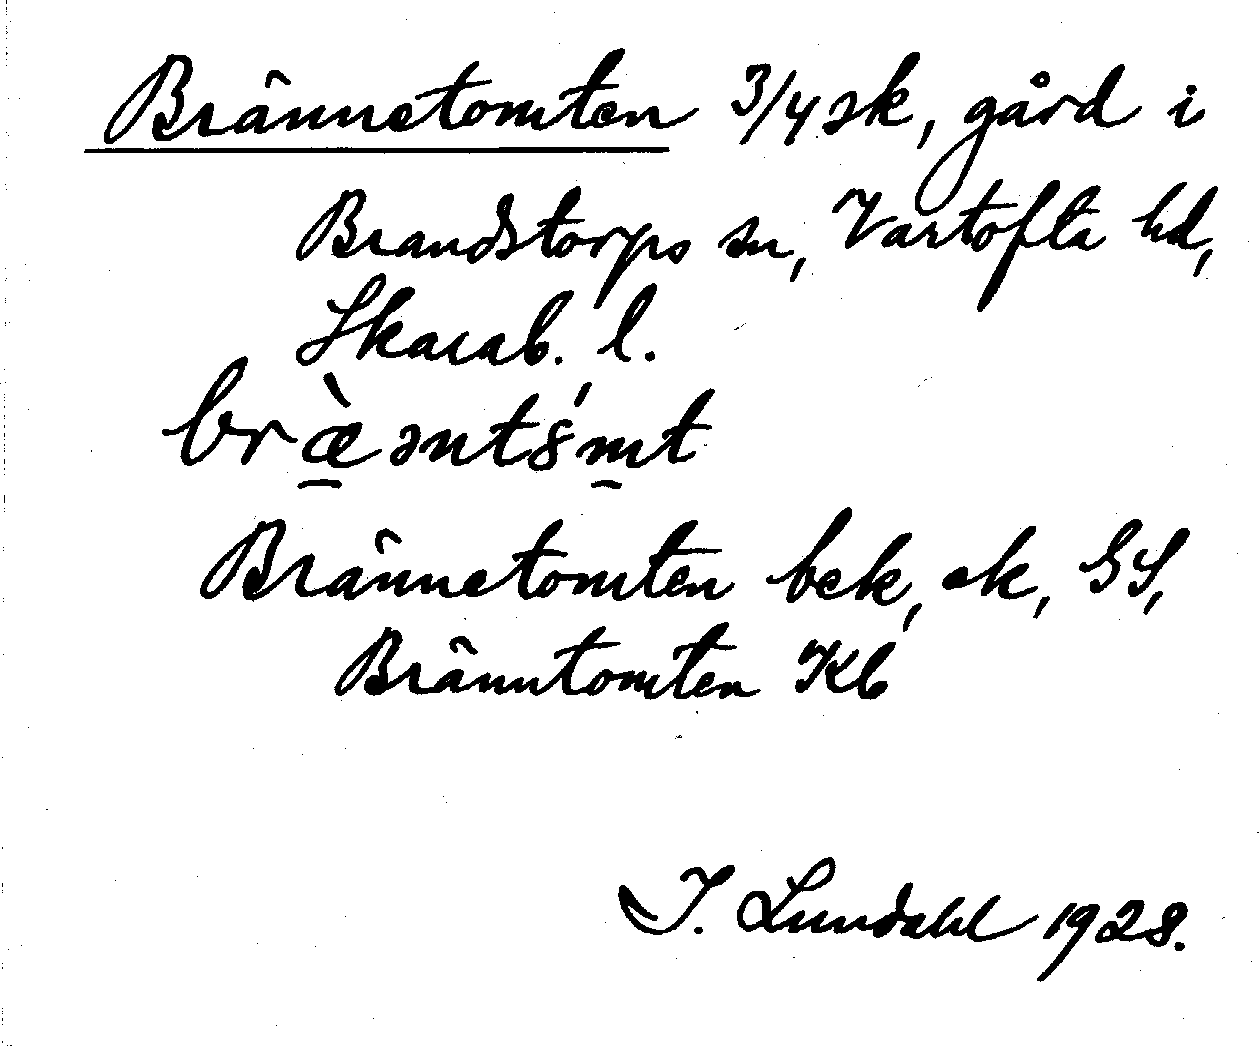 Brännetomten 3/4 sk, gård i
Brandstorps sn, Vartofta hd,
Skarab. l.
Brännetomten bek, ek, GS,
Bränntomten Kb
I. Lundahl 1928.